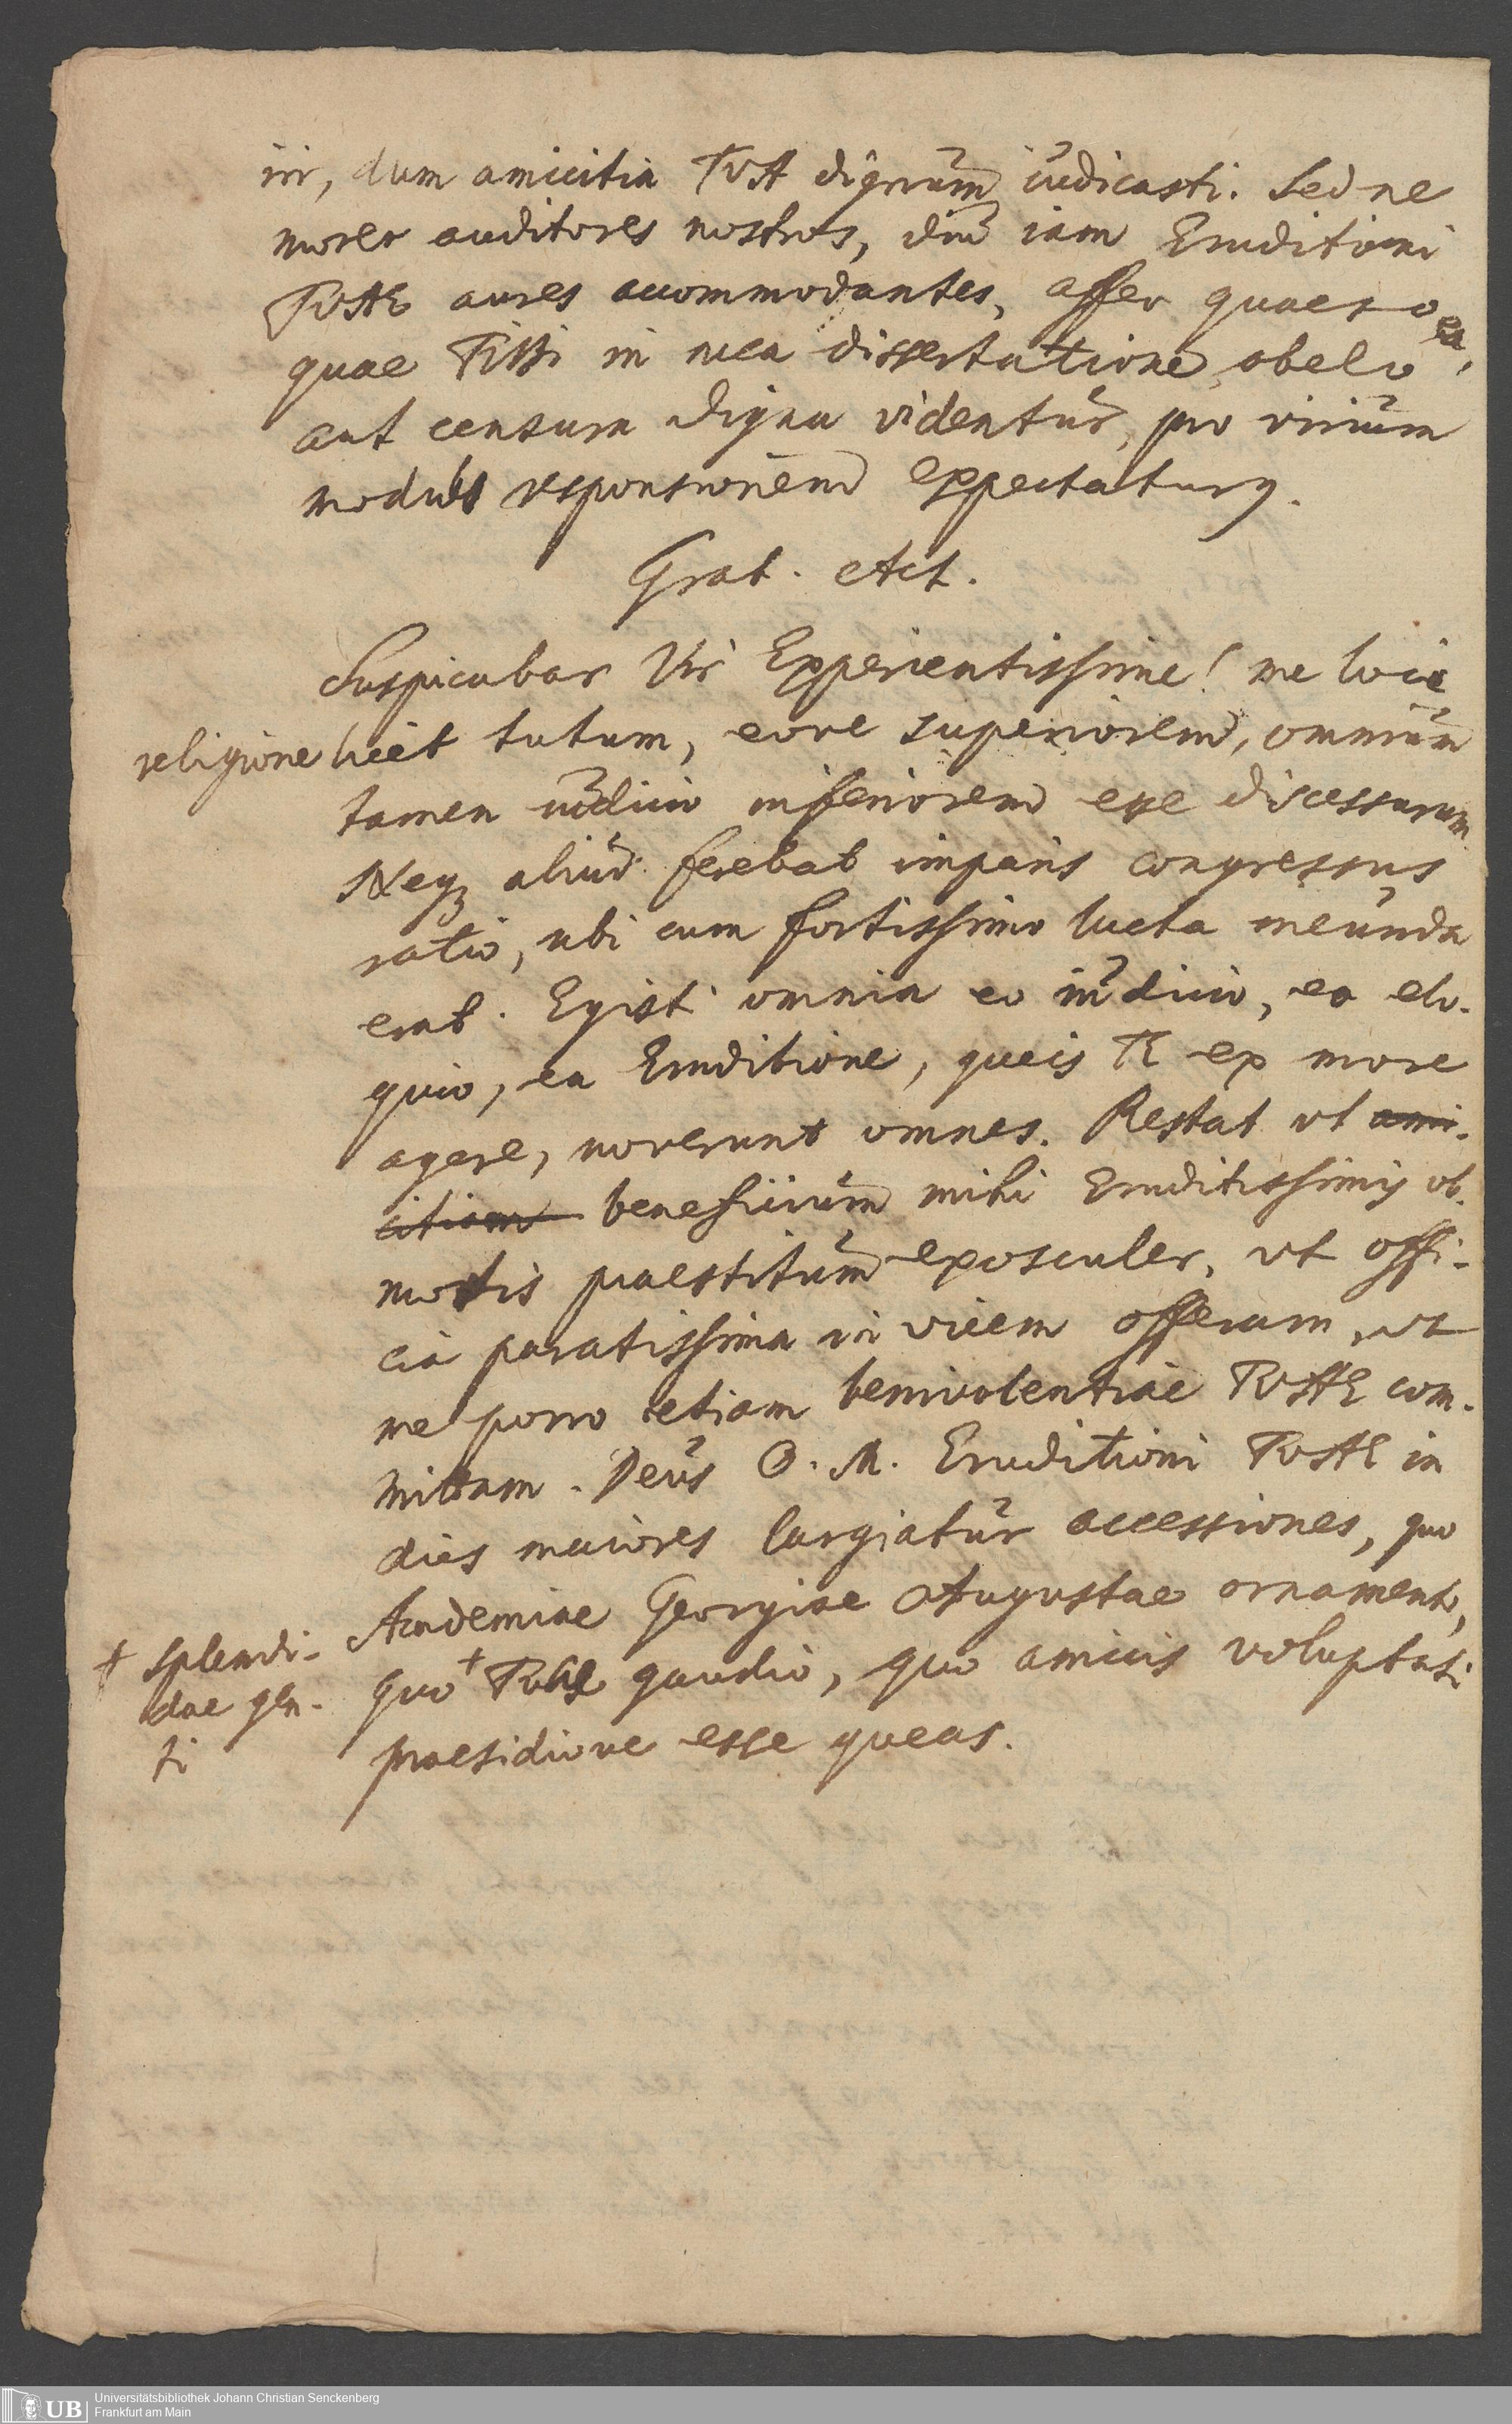 iri, dum amicitia TVA dignum iudicasti. Sed ne
morer auditores nostros, diu iam Eruditioni
TVAE aures accommodantes, affer quaeso ea,
quae TIBI in mea dissertatione obelo
aut censura digna videntur, pro virium
modulo responsionem expectaturus.
Grat. Act.
Suspicabar Vir Experientissime! me loci
religione licet tutum, eove superiorem, omnium
tamen iudicio inferiorem esse discessurum
Neq aliud ferebat imparis congressus
ratio, ubi cum fortissimo lucta ineunda
erat. Egisti omnia eo iudicio, eo elo-
quio, ea Eruditione, queis TE ex more
agere, noverunt omnes. Restat ut ami-
citiam beneficium mihi Eruditissimis ob-
motis praestitum exosculer, ut offi-
cia paratissima in vicem offeram, ut
me porro etiam benivolentiae TVAE com-
mittam. Deus O. M. Eruditioni TVAE in
dies maiores largiatur accessiones, quo
Academiae Georgiae Augustae ornamento,
quo + TVAE gaudio, quo amicis voluptati
+ splendi-
dae gen-
ti
praesidiove esse queas.
UB
Universitätsbibliothek Johann Christian Senckenberg
Frankfurt am Main